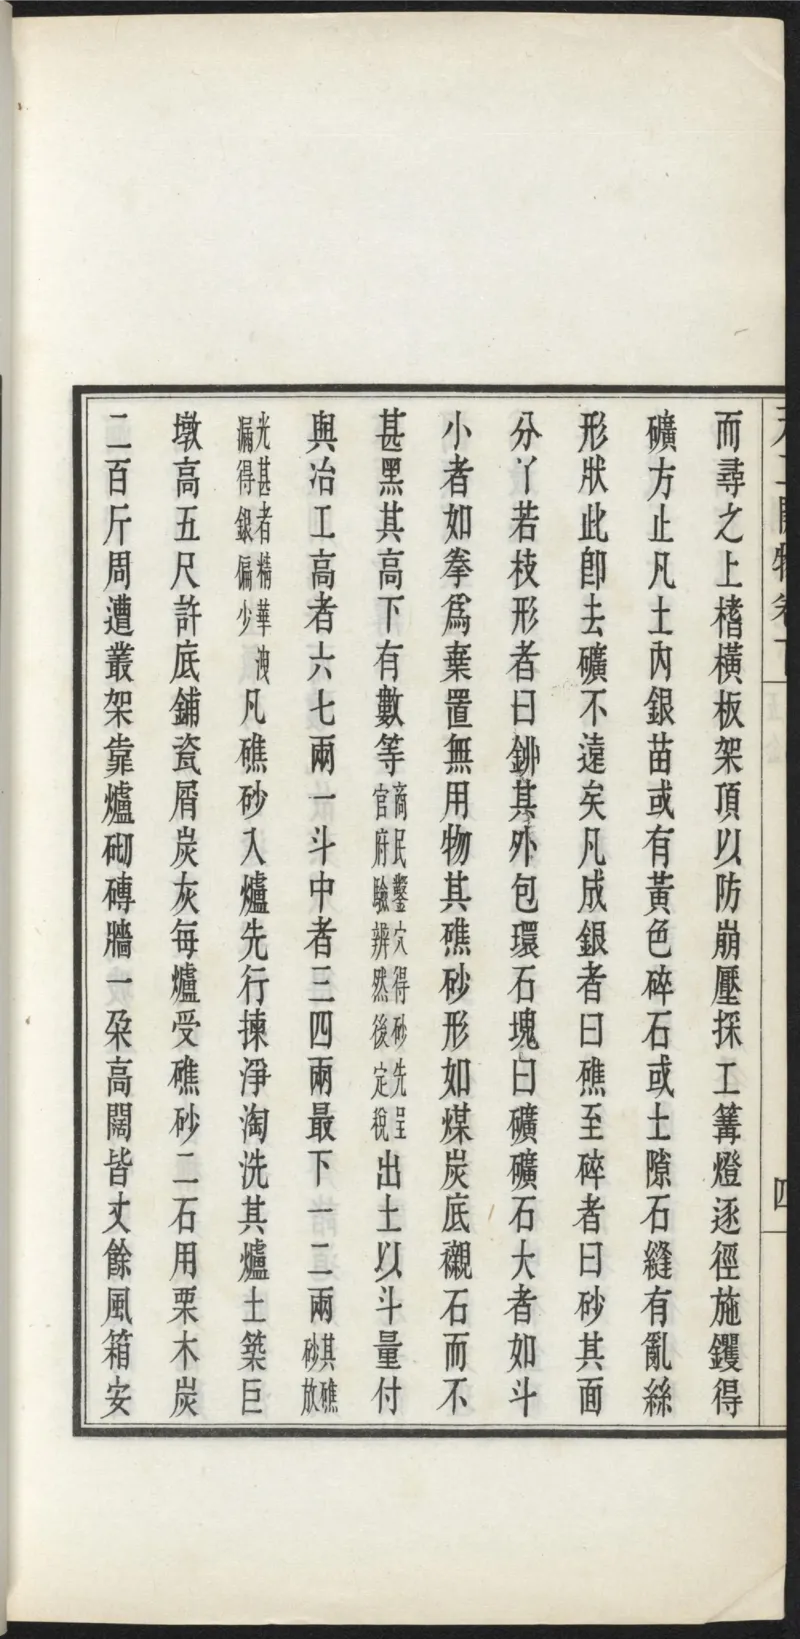 而尋之上榰橫板架頂以防崩壓採工篝燈逐徑施鑊得
礦方止凡土內銀苗或有黃色碎石或土隙石縫有亂絲
形狀此卽去礦不遠矣凡成銀者曰礁至碎者曰砂其面
分丫若枝形者曰鉚其外包環石塊曰礦礦石大者如斗
小者如拳爲棄置無用物其礁砂形如煤炭底襯石而不
甚黑其高下有數等商民鑿穴得砂先呈官府驗辨然後定稅出土以斗量付
與冶工高者六七兩一斗中者三四兩最下一二兩其礁砂放
光甚者精華洩漏得銀偏少凡礁砂入爐先行揀淨淘洗其爐土築巨
墩高五尺許底鋪瓷屑炭灰每爐受礁砂二石用栗木炭
二百斤周遭叢架靠爐砌磚牆一朶高闊皆丈餘風箱安
四